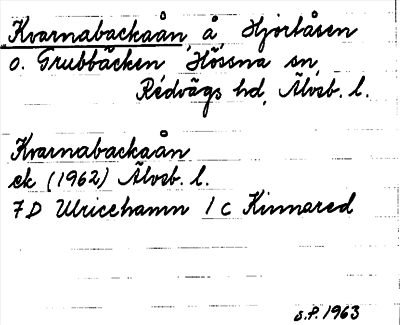 Kvarnabackaån å Hjorbåsen
o. Grubbäcken Hössna sn,
Redvägs hd, Älvsb. l.
Kvarnabackaån
ek (1962) Älvsb. l.
7 D Ulricehamn 1 c Kinnared
S.P. 1963